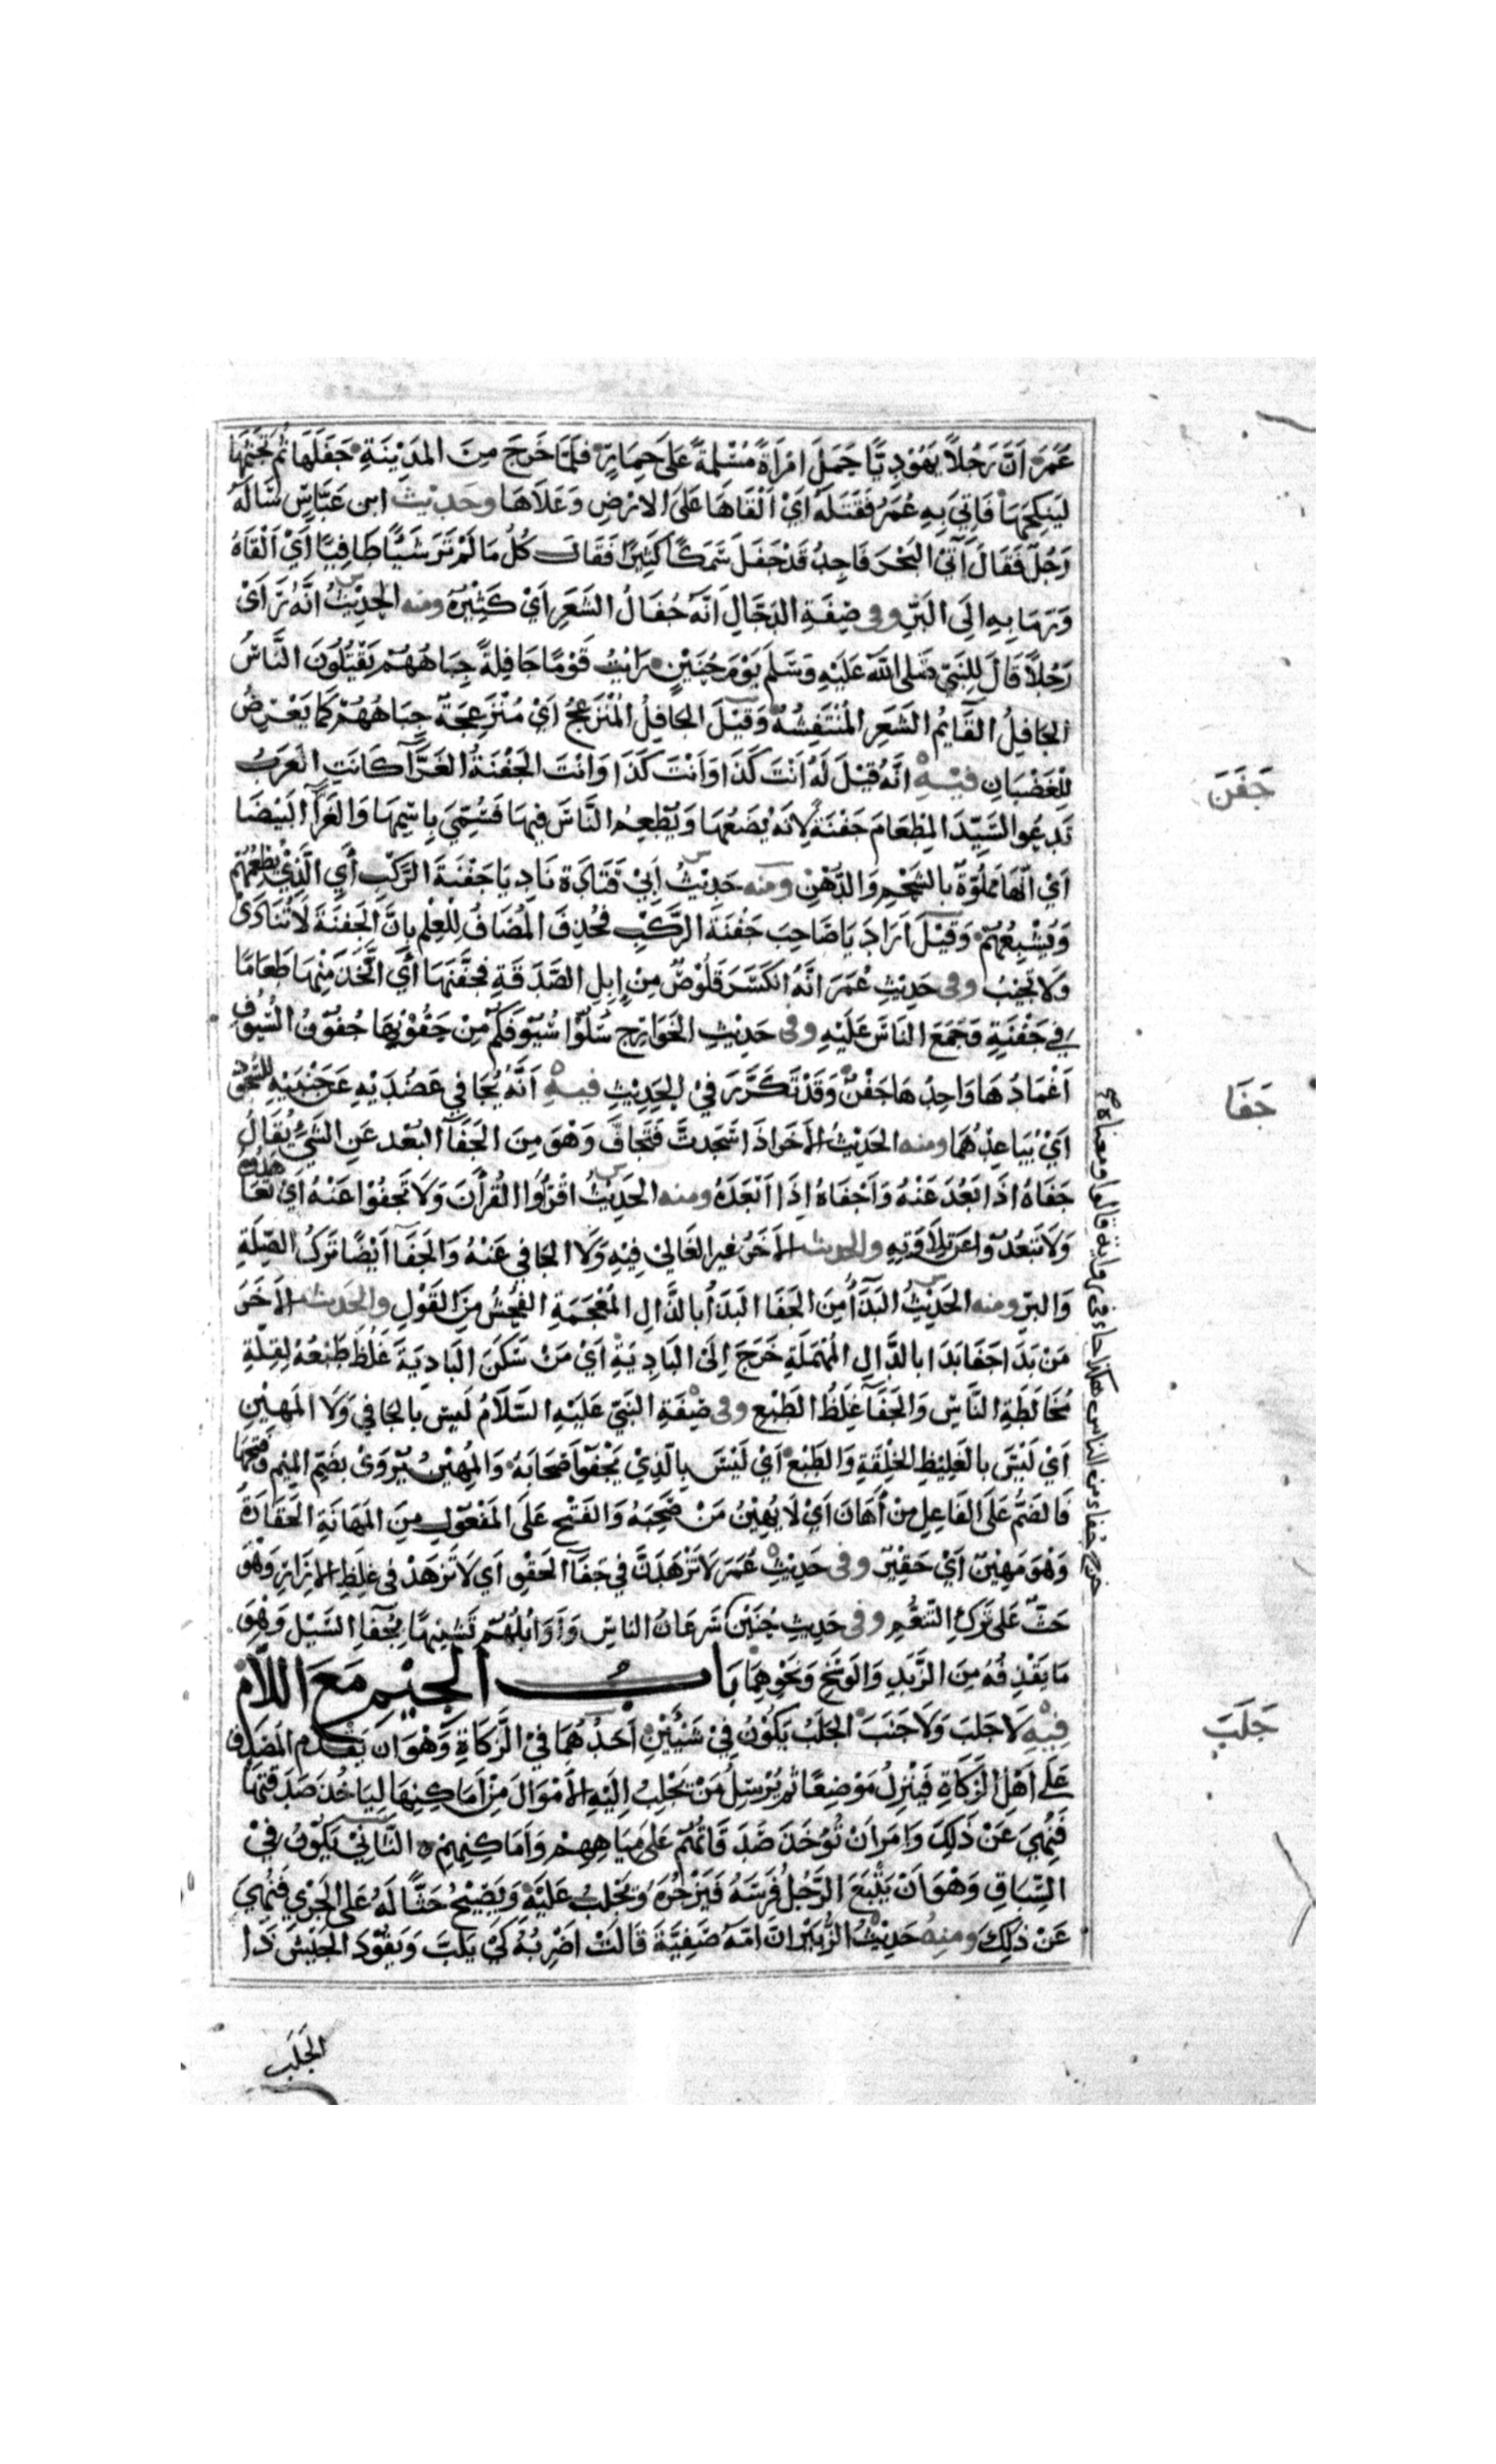 عُمَرَ اَنَّ رَجُلاً يَهُوْدِيًّا حَمَلَ امْرَاَةً مُسْلِمَةً عَلَى حِمَارٍ فَلَمَّا خَرَجَ مِنَ المَدِيْنَةِ جَفَلَهَا ثُمَّ تَجَثَّمَهَا
لِيَنْكِحَهَا فَاُتِيَ بِهِ عُمَرُ فَقَتَلَهُ اَيْ اَلْقَاهَا عَلَى الاَرْضِ وَعَلَاهَا وحَدِيْث ابن عَبَّاسٍ سَاَلَهُ
رَجُلٌ فَقَالَ آتِي البَحْرَ فَاَجِدُ قَدْ جَفَلَ سَمَكًا كَثِيْرًا فَقَال كُلْ مَا لَمْ تَرَ شَيْئًا طَافِيًا اَيْ اَلْقَاهُ
وَرَمَا بِهِ اِلَى البَرِّ وفي صِفَةِ الدَّجَّالِ اَنَّهُ جُفَالُ الشَّعَرِ اَيْ كَثِيْرُهُ ومنه الحَدِيْثُ اَنَّهُ رَاَى
رَجُلاً قَالَ لِلنَّبِيِّ صَلى اللهُ عَلَيْهِ وَسَلَّمَ يَوْمَ حُنَيْنٍ رَاَيْتُ قَوْمًا جَافِلَةً جِبَاهُهُمْ يَقْتُلُوْنَ النَّاسَ
الجَافِلُ القَايِمُ الشَّعَرِ المُنْتَفِشُهُ وَقِيْلَ الجَافِلُ المُنْزَعِجُ اَيْ مُنْزَعِجَةً جِبَاهُهُمْ كَمَا يَعْرِضُ
لِلْغَضْبَانِ فيْهِ اَنَّهُ قِيْلَ لَهُ اَنْتَ كَذَا وَاَنْتَ كَذَا وَاَنْتَ الجَفْنَةُ الغَرَّآ كَانَتِ العَرَبُ
تَدْعُو السَّيِّدَ المِطْعَامَ جَفْنَةً لِاَنَّهُ يَضَعُهَا وَيُطْعِمُ النَّاسَ فِيهَا فَسُمِّيَ بِاسْمِهَا وَالغَرَّآ البَيْضَا
اَيْ اَنَّهَا مَمْلُوَّةٌ بالشَّحْمِ وَالدُّهْنِ ومنه حَدِيْثُ اَبِيْ قَتَادَةَ نَادِ يَا جَفْنَةَ الرَّكْبِ اَيِ الَّذِيْ يُطْعِمُهُمْ
وَيُشْبِعُهُمْ وَقِيْلَ اَرَادَ يَا صَاحِبَ جَفْنَةَ الرَّكْبِ فَحُذِفَ المُضَافُ لِلْعِلْمِ بِاَنَّ الجَفْنَةَ لَا تُنَادَى
وَلَا تُجِيْبُ وفي حَدِيْثِ عُمَرَ اَنَّهُ انْكَسَرَ قَلُوْصٌ مِنْ اِبِلِ الصَّدَقَةِ فَجَفَّنَهَا اَيِ اتَّخَذَ مِنْهَا طَعَامًا
فِي جَفْنَةٍ وَجَمَعَ النَاسَ عَلَيْهِ وفي حَدِيْثِ الخَوَارِجِ سُلُّوا سُيُوْفَكُمْ مِنْ جُفُوْنِهَا جُفُوْنُ السُّيُوْفِ
اَغْمَادُهَا وَاحِدُهَا جَفْنٌ وَقَدْ تَكَرَّرَ فيْ الحَدِيْثِ فيهِ اَنَّهُ يُجَافي عَضُدَيْهِ عَنْ جَنْبَيْهِ لِلسُّجُوْدِ
اَيْ يُبَاعِدُهُمَا ومنه الحَدِيْثُ الآخَر اذَا سَجَدتَّ فَتَجَافَّ وَهْوَ مِنَ الجَفَآ البُعْد عَنِ الشَّيْ يُقَالُ
جَفَاهُ اِذَا بَعُدَ عَنْهُ وَاَجْفَاهُ اِذَا اَبْعَدَهُ ومنه الحَدِيْثُ اقْرَاُوا القُرْاَنَ وَلَا تَجْفُوْا عَنْهُ اَيْ تَعَاهَدُوْهُ
وَلَا تَبْعُدُوْا عَنْ تِلَاوَتِهِ والحديث الآخَرُ غير الغَالِيْ فِيْهِ وَلَا الجَافي عَنْهُ وَالجَفَآ اَيْضًا تَرْكُ الصِّلَةِ
وَالبِرِّ ومنه الحَدِيْثُ البَذَآُ مِنَ الجَفَا البَذَآُ بالذَّالِ المُعْجَمَةِ الفُحْشُ مِنَ القَوْلِ والحَديث الآخَرُ
مَنْ بَدَا جَفَا بَدَا بالدَّالِ المُهْمَلَةِ خَرَجَ اِلَى البَادِيَةِ اَيْ مَنْ سَكَنَ البَادِيَةَ غَلُظَ طَبْعُهُ لِقِلَّةِ
مُخَالَطَةِ النَّاسِ وَالجَفَآُ غِلَظُ الطَّبْعِ وفي صِفَةِ النَّبِيِّ عَلَيْهِ السَّلَامُ لَيسَ بالجَافِي وَلَا المَهِيْنِ
اَيْ لَيْسَ بالغَلِيْظِ الخِلْقَةِ وَالطَّبْعِ اَيْ لَيْسَ بِالَّذِيْ يَجْفُوْ اَصْحَابَهُ وَالمُهِيْن يُرْوَى بضَمِّ المِيْمِ وَفَتْحِهَا
فَالضَّمُّ عَلَى الفَاعِلِ مِنْ اَهَانَ اَيْ لَا يُهِيْنُ مَنْ صَحِبَهُ وَالفَتْح عَلَى المَفْعُوْلِ مِنَ المَهَانَةِ الحَقَارَةُ
وَهْوَ مَهِيْنٌ اَيْ حَقِيْر وفي حَدِيْثِ عُمَرَ لَا تَزْهَدَنَّ في جَفَآ الحَقْوِ اَي لَا تَزْهَدْ في غِلَظِ الازَارِ وَهْوَ
حَثٌّ عَلى تَرْكِ التَّنَعُّمِ وفي حَدِيثِ حُنَيْنٍ سَرَعَانُ الناسِ وَاَوَايِلُهُمْ تَشْبِيْهًا بِجُفَآ السَّيْل وَهْوَ
مَا يَقْذِفُهُ مِنَ الزَّبَدِ وَالوَسَخِ وَنَحْوِهِمَا بَابُ الجِيْمِ مَعَ اللَّام
فِيْهِ لَا جَلَبَ وَلَا جَنَبَ الجَلَبُ يَكُوْنُ فِيْ شَيْئَيْنِ اَحَدُهُمَا فيْ الزَّكَاةِ وَهْوَ اَنْ يَقْدَم المُصَدِّق
عَلَى اَهْلِ الزَّكَاةِ فَيَنْزِلُ مَوْضِعًا ثُمَّ يُرْسِلُ مَنْ يَجْلِبُ اِلَيْهِ الاَمْوَالَ مِنْ اَمَاكِنِهَا لِيَاخُذَ صَدَقَتَهَا
فَنُهِيَ عَنْ ذَلِكَ وَامَرَ اَنْ تُؤْخَذَ صَدَقَاتُهُمْ عَلَى مِيَاهِهِمْ وَاَمَاكِنِهِمْ ٥ الثَّانِيْ يَكُوْنُ فيْ
السِّبَاقِ وَهْوَ اَنْ يَتْبَعَ الرَّجُلُ فَرَسَهُ فَيَزْجُرُهُ وَيَجْلِبُ عَلَيْهِ وَيَصْيْحُ حَثًّا لَهُ عَلى الجَرْي فَنُهِيَ
عَنْ ذَلِكَ ومنهُ حَدِيْثُ الزُّبَيْرِ انَّ امَّهُ صَفِيَّةَ قَالَتْ اَضْرِبُهُ كَيْ يَلَبَّ وَيَقُوْدَ الجَيْشَ ذَا
الجَلَبِ
جَفَنَ
جَفَا
جَلَبَ